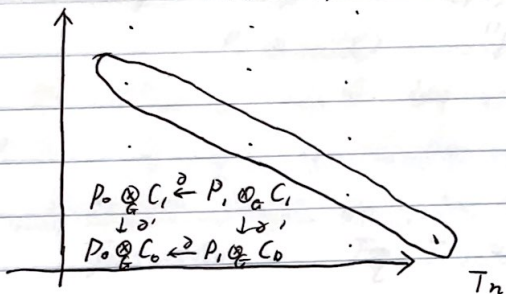 P₀ ⊗_G C₁ ←∂ P₁ ⊗_G C₁
↓∂' ↓∂'
P₀ ⊗_G C₀ ←∂ P₁ ⊗_G C₀
Tn